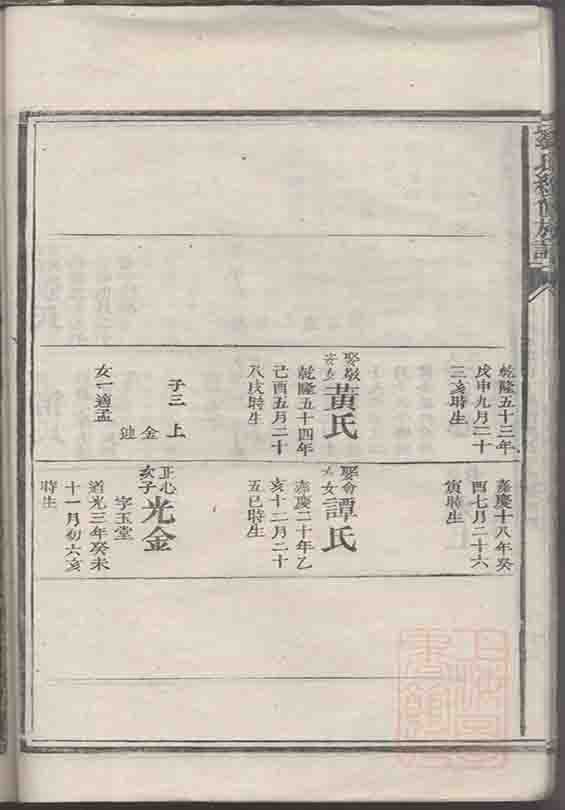 氏續修族譜
乾隆五十三年
戊申九月三十
三亥時生
娶
女
黃氏
乾隆五十四年
己酉五月二十
八戌時生
子三
上
金
女一適孟
嘉慶十八年癸
酉七月二十六
寅時生
娶
女
譚氏
嘉慶二十年乙
亥十二月二十
五巳時生
正心
次子
光金
字玉堂
道光三年癸未
十一月初六亥
時生
上海圖
書館